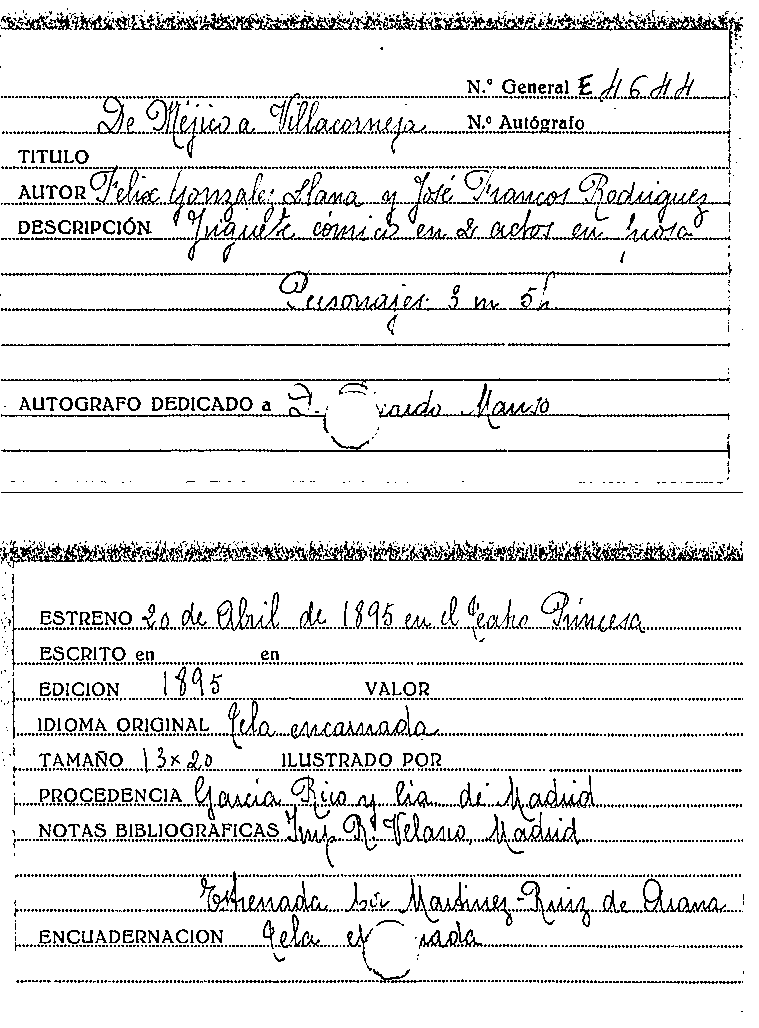 N.º General E 4644
De Méjico a Villaconeja N.º Autógrafo
TITULO
AUTOR Felix Gonzalez Llana y José Francos Rodriguez
DESCRIPCIÓN Juguete cómico en 2 actos en prosa
Personajes 3 m 5 h
AUTOGRAFO DEDICADO a D. Manso
ESTRENO 20 de Abril de 1895 en el Teatro Princesa
ESCRITO en en
EDICION 1895 VALOR
IDIOMA ORIGINAL Tela encarnada
TAMAÑO 13×20 ILUSTRADO POR
PROCEDENCIA Garcia Rico y Cia de Madrid
NOTAS BIBLIOGRAFICAS Imp R. Velasco, Madrid
Estrenada por Martinez-Ruiz de Arana
ENCUADERNACION Tela